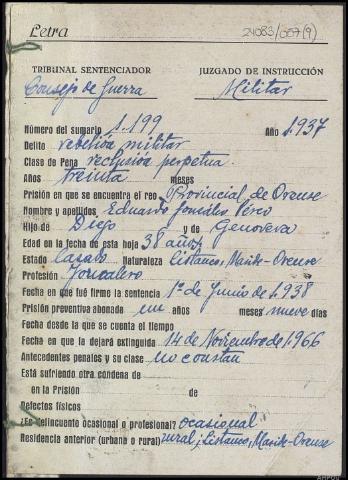 Letra
24083/007(9)
TRIBUNAL SENTENCIADOR JUZGADO DE INSTRUCCIÓN
Consejo de Guerra Militar
Número del sumario 1.199 Año 1.937
Delito rebelión militar
Clase de Pena reclusión perpetua.
Años treinta meses
Prisión en que se encuentra el reo Provincial de Orense
Nombre y apellidos Eduardo González
Hijo de Diego y de Genoveva
Edad en la fecha de esta hoja 38 años
Estado casado Naturaleza Listanco, Maside-Orense
Profesión Jornalero
Fecha en que fué firme la sentencia 1º de Junio de 1.938
Prisión preventiva abonada un años meses nueve días
Fecha desde la que se cuenta el tiempo
Fecha en que la dejará extinguida 14 de Noviembre de 1.966
Antecedentes penales y su clase no constan
Está sufriendo otra condena de
en la Prisión de
Defectos físicos
¿Es delincuente ocasional o profesional? ocasional
Residencia anterior (urbana o rural) rural; Listanco, Maside-Orense